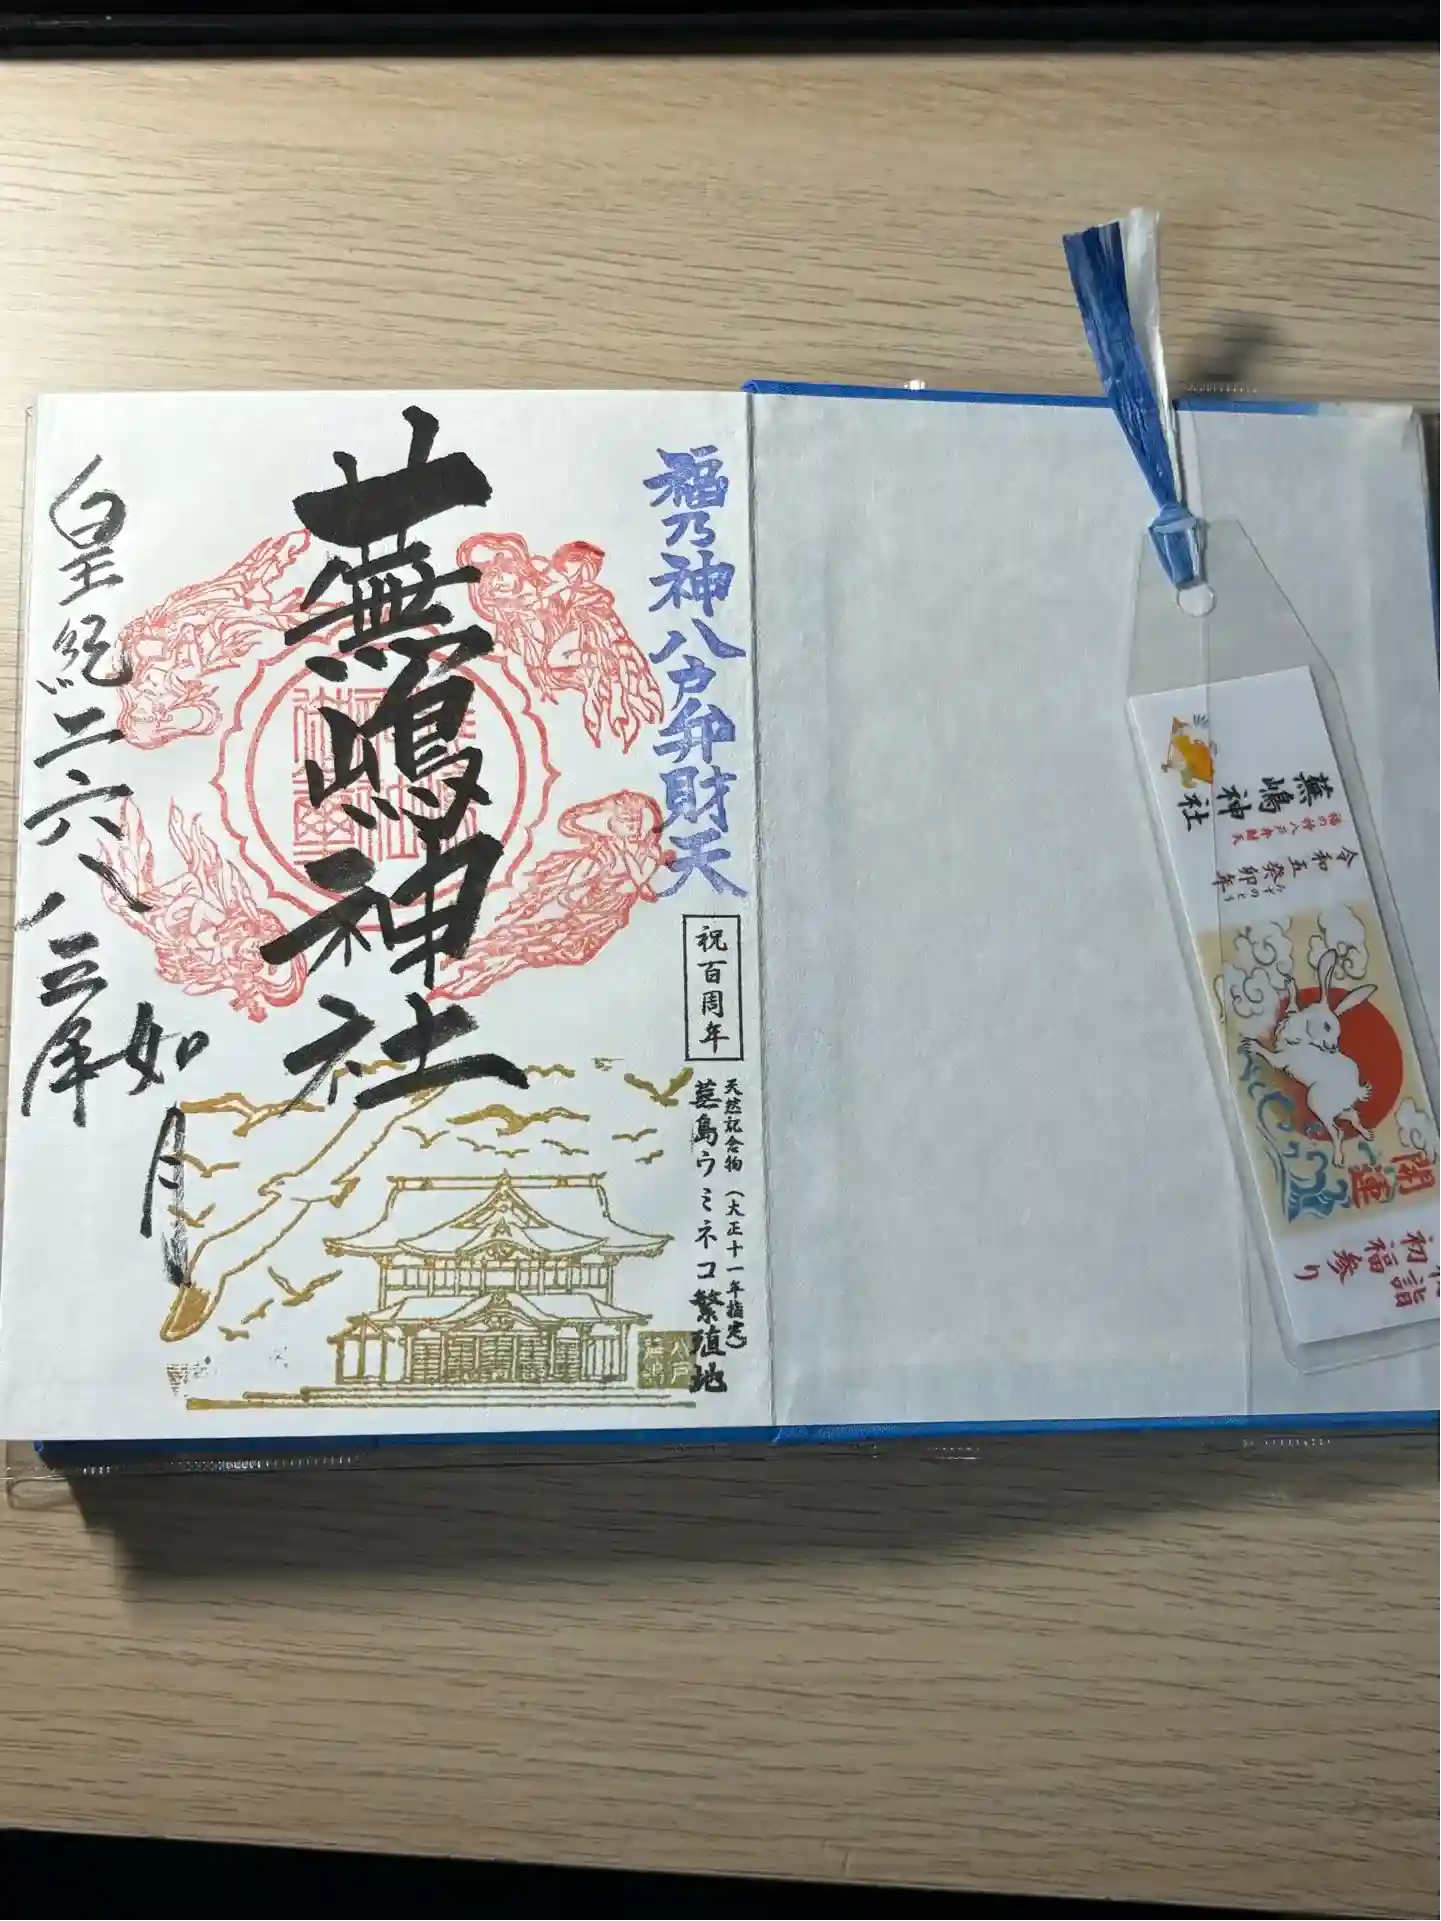 福乃神八戸弁財天
祝百周年
天然記念物(大正十一年指定)
蕪島ウミネコ繁殖地
蕪嶋神社
皇紀二六八三年
如月
八戸
蕪嶋
蕪嶋神社
福の神八戸弁財天
令和五癸卯年
みずのとう
開運
初詣
初福参り